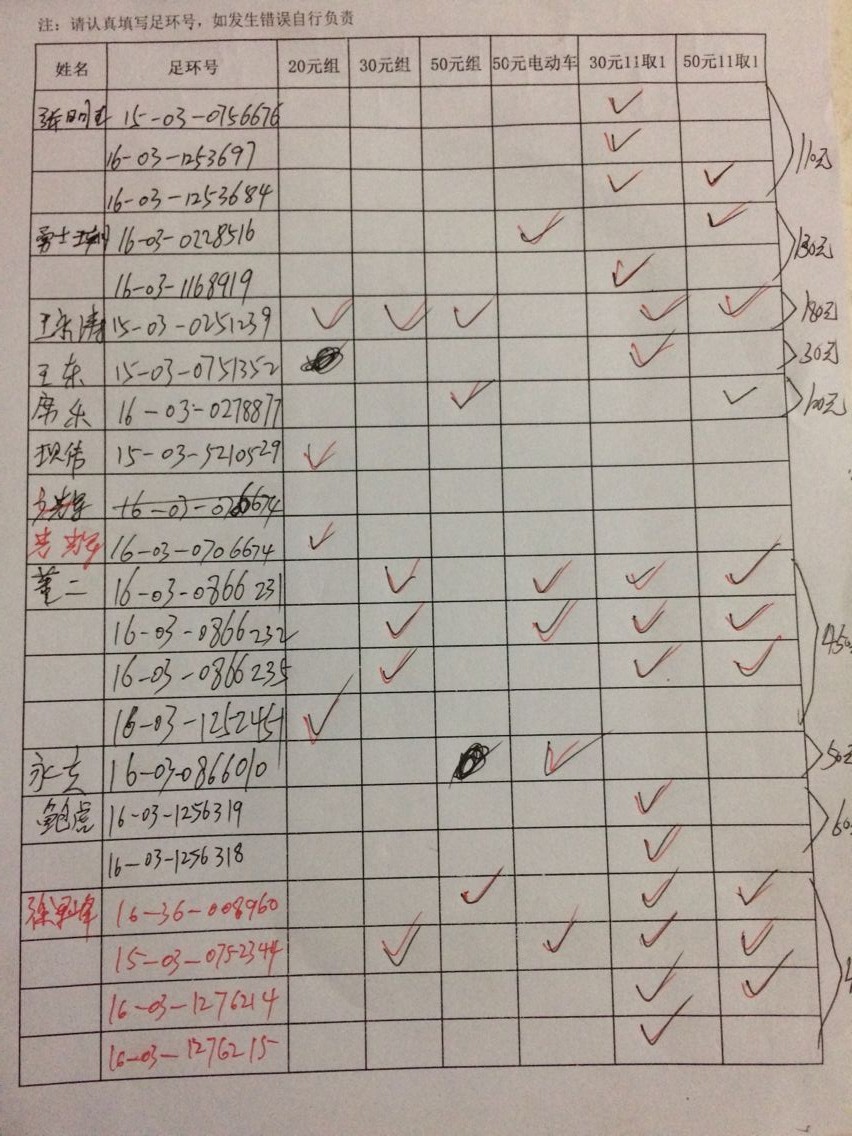 注：请认真填写足环号，如发生错误自行负责
姓名 足环号 20元组 30元组 50元组 50元电动车 30元11取1 50元11取1
15-03-0756676 ✓
16-03-1253697 ✓ 110元
16-03-1253684 ✓ ✓
勇士 16-03-0228516 ✓ ✓
16-03-1168919 ✓ 130元
15-03-0251239 ✓ ✓ ✓ ✓ ✓ 180元
王东 15-03-0751352 ✓ 30元
席东 16-03-0278877 ✓ ✓ 100元
15-03-5210529 ✓
16-03-0706674 ✓
董二 16-03-0866231 ✓ ✓ ✓ ✓
16-03-0866232 ✓ ✓ ✓ ✓ 450
16-03-0866235 ✓ ✓ ✓
16-03-1252451 ✓
16-03-0866010 ✓ 50元
鲍虎 16-03-1256319 ✓ 60
16-03-1256318 ✓
16-36-008960 ✓ ✓ ✓
15-03-0752344 ✓ ✓ ✓ ✓
16-03-1276214 ✓ ✓
16-03-1276215 ✓